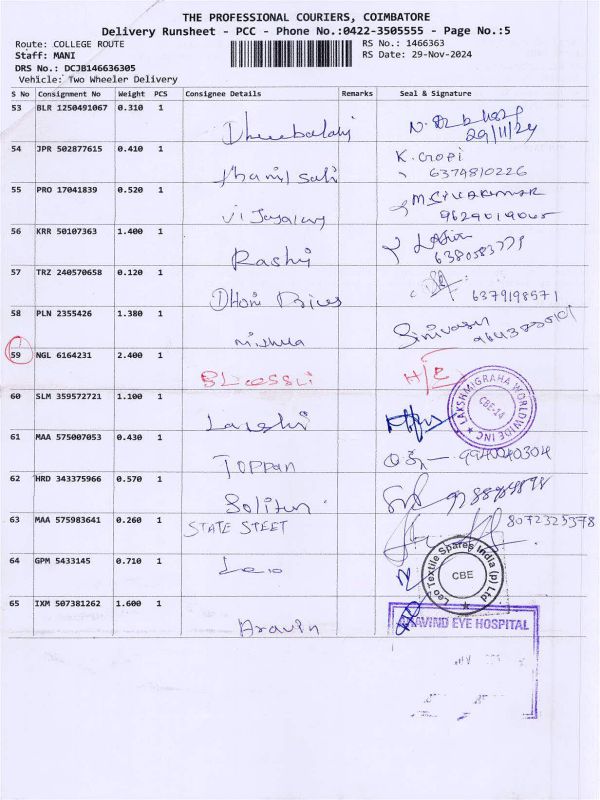 THE PROFESSIONAL COURIERS, COIMBATORE
Delivery Runsheet - PCC - Phone No.:0422-3505555 - Page No.:5
Route: COLLEGE ROUTE RS No.: 1466363
Staff: MANI RS Date: 29-Nov-2024
DRS No.: DCJB146636305
Vehicle: Two Wheeler Delivery
S No Consignment No Weight PCS Consignee Details Remarks Seal & Signature
53 BLR 1250491067 0.310 1
29/11/24
54 JPR 502877615 0.410 1 K. Gopi
6374810226
55 PRO 17041839 0.520 1 M SIVAKUMAR
56 KRR 50107363 1.400 1 Rashi
57 TRZ 240570658 0.120 1 Dhoni 6379198571
58 PLN 2355426 1.380 1 Srinivasan
59 NGL 6164231 2.400 1
60 SLM 359572721 1.100 1 Lakshi
LAKSHMIGRAHA WORLDWIDE INC
CBE-14
61 MAA 575007053 0.430 1 TOPPAN 9940040304
62 HRD 343375966 0.570 1
63 MAA 575983641 0.260 1 STATE STEET 8072325378
64 GPM 5433145 0.710 1 Leo
Leo Textile Spares India (p) Ltd
CBE
65 IXM 507381262 1.600 1 Aravin
ARAVIND EYE HOSPITAL